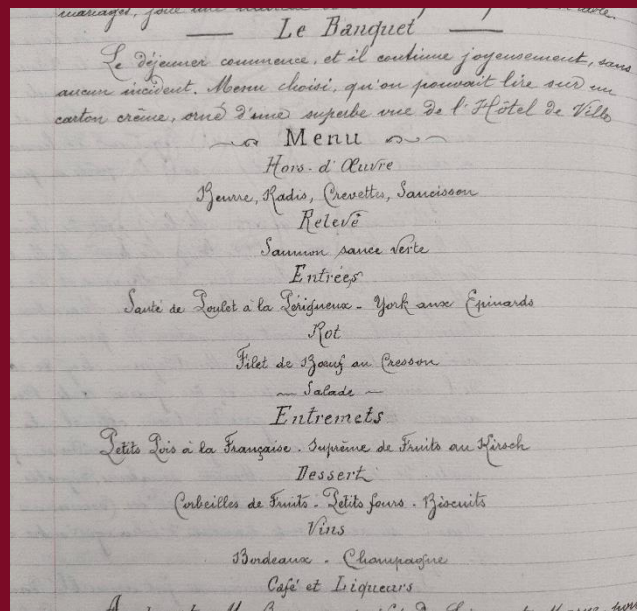 mariages, joue une
— Le Banquet —
Le déjeuner commence, et il continue joyeusement, sans
aucun incident. Menu choisi, qu'on pouvait lire sur un
carton crème, orné d'une superbe vue de l'Hôtel de Ville
Menu
Hors-d'Œuvre
Beurre, Radis, Crevettes, Saucisson
Relevé
Saumon sauce verte
Entrées
Sauté de Poulet à la Périgueux - York aux Epinards
Rot
Filet de Bœuf au Cresson
— Salade —
Entremets
Petits Pois à la Française. Suprême de Fruits au Kirsch
Dessert
Corbeilles de Fruits. Petits fours. Biscuits
Vins
Bordeaux. Champagne
Café et Liqueurs